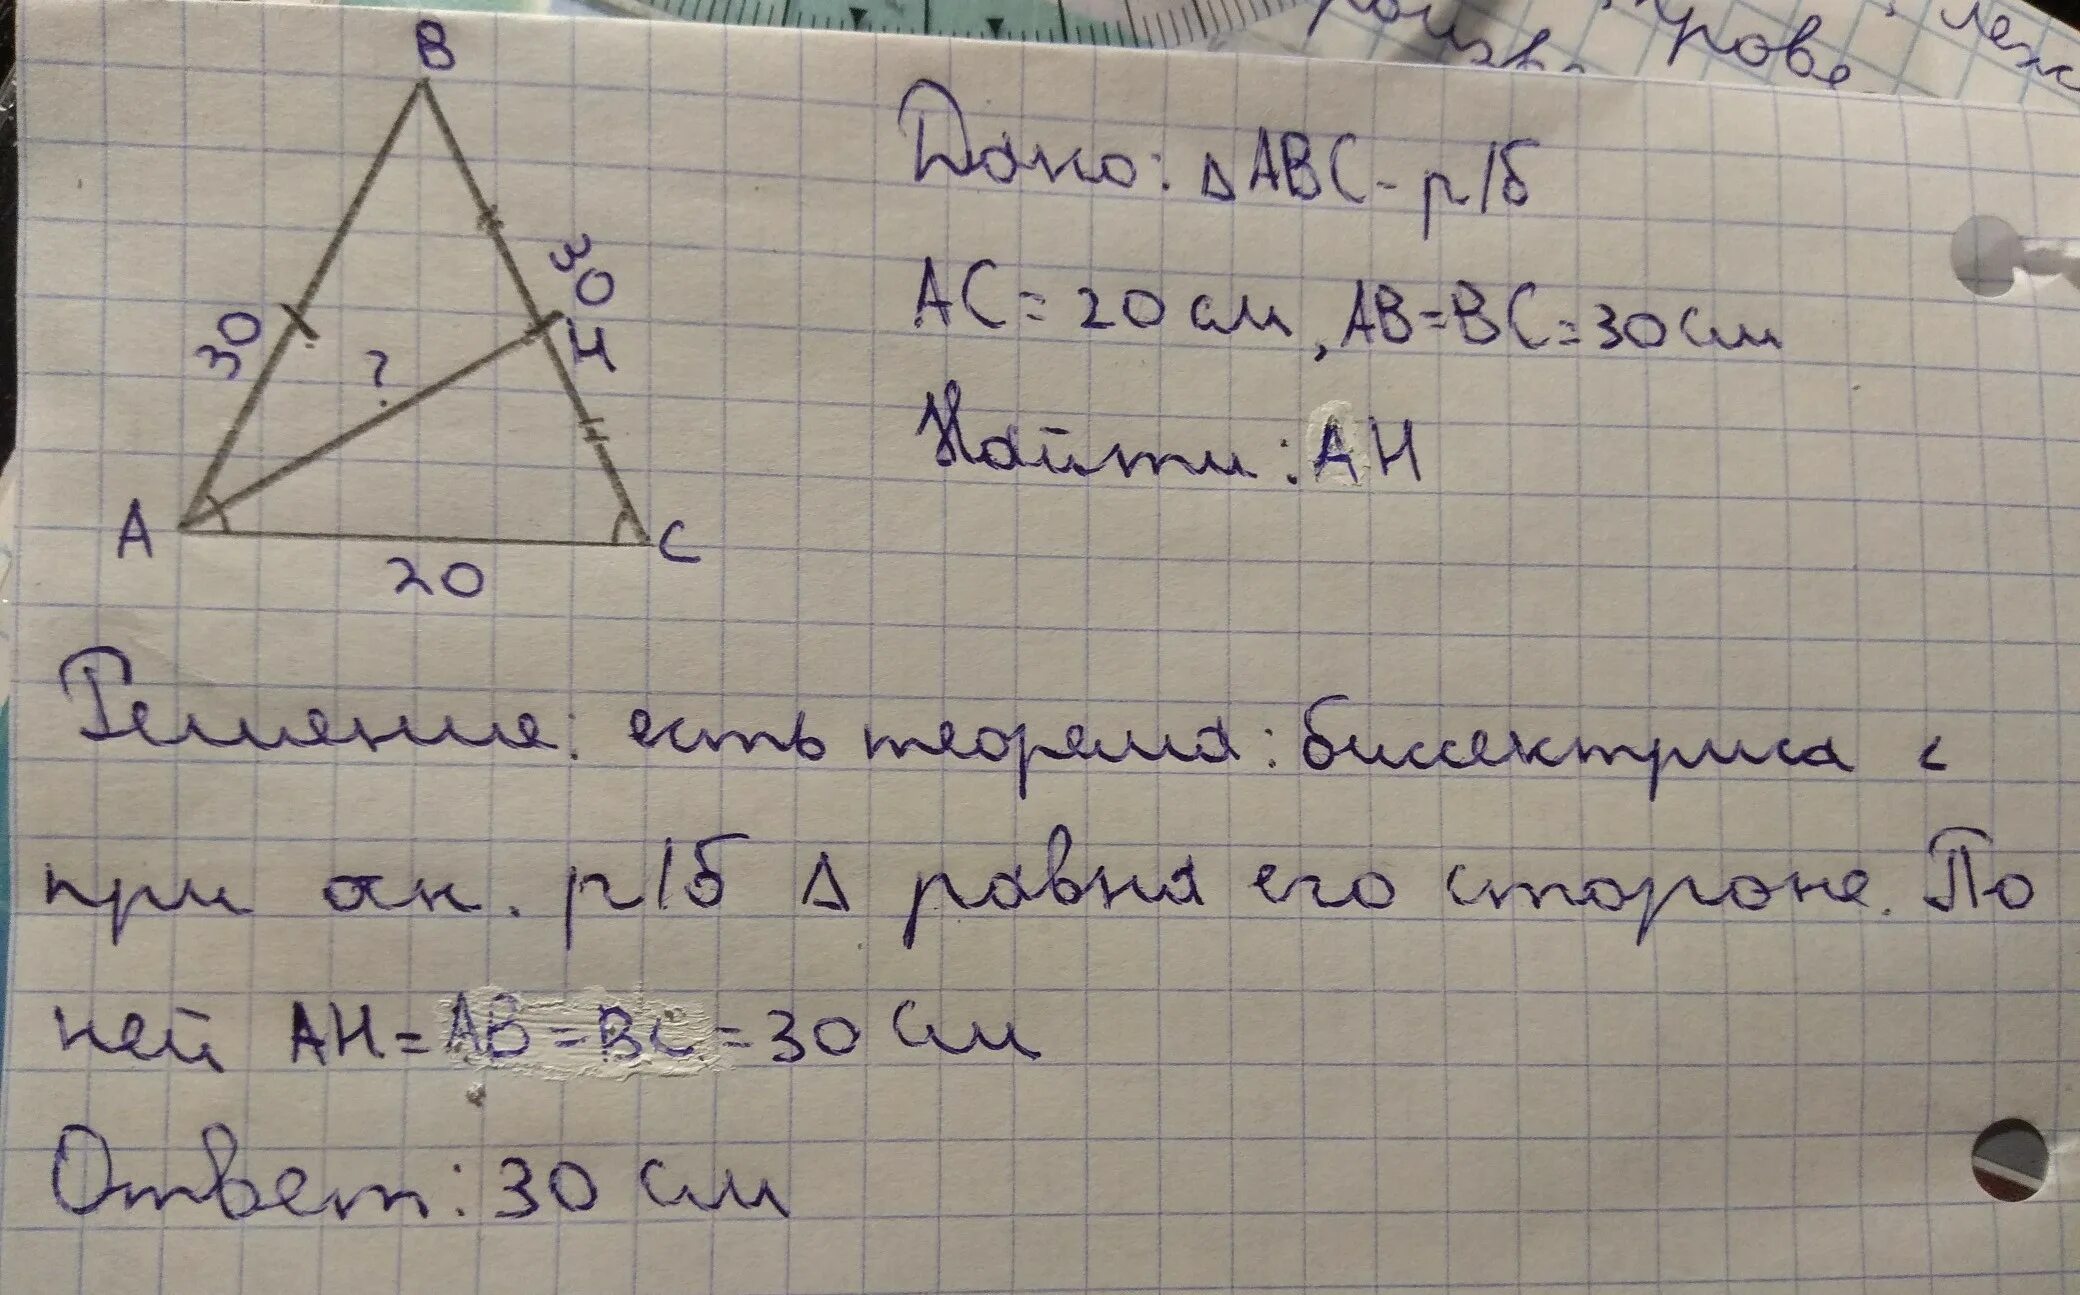 прове
леж
B
Дано: △ABC - р/б
30
30
AC = 20 см, AB=BC=30 см
H
?
Найти: AH
A
C
20
Решение: есть теорема: биссектриса с
при р/б △ равна его стороне. По
ней AH = AB = BC = 30 см
Ответ: 30 см